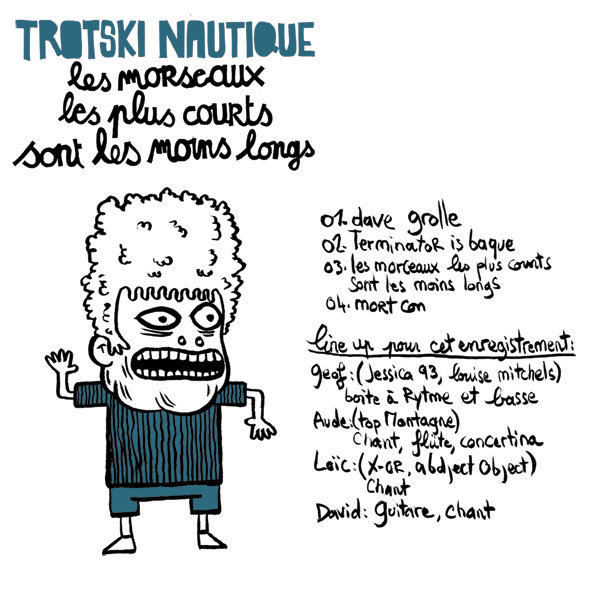 TROTSKI NAUTIQUE
les morseaux
les plus courts
sont les moins longs
01. dave grolle
02. TerminatoR is baque
03. les morceaux les plus courts
sont les moins longs
04. mort con
line up pour cet enregistrement:
geof: (Jessica 93, louise mitchels)
boîte à Rytme et basse
Aude: (top Montagne)
Chant, flûte, concertina
Loïc: (X-OR, abdject Object)
Chant
David: guitare, chant